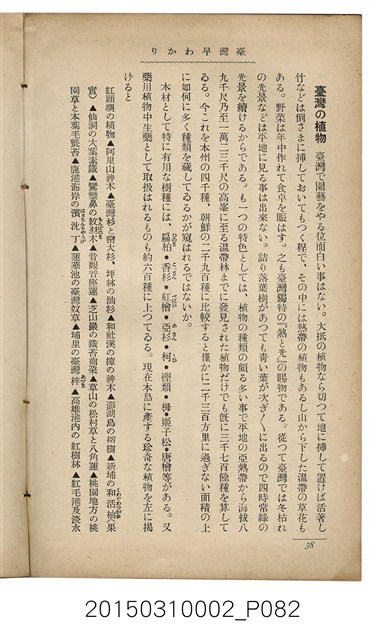 臺灣早わかり
臺灣の植物 臺灣で園藝をやる位面白い事はない。大抵の植物なら切つて地に挿して置けば活著し
竹などは倒さまに挿しておいてもつく程で、その中には熱帶の植物もあるし山から下した溫帶の草花も
ある。野菜は年中作れて食卓を賑はす。之も臺灣獨特の『熱と光』の賜物である。從つて臺灣では冬枯れ
の光景などは平地に見る事は出來ない。詰り落葉樹があつても青い葉が次ぎ〱に出るので四時常綠の
光景を續けるからである。も一つの特色としては、植物の種類の頗る多い事で平地の亞熱帶から海拔八
九千尺乃至一萬二三千尺の高峯に至る溫帶林までに發見された植物だけでも既に三千七百餘種を算して
ゐる。今これを本州の四千種、朝鮮の二千九百種に比較すると僅かに二千三百方里に過ぎない面積の上
に如何に多く種類を藏してゐるかが窺はれるではないか。
木材として特に有用な樹種には、扁柏・香杉・紅檜・亞杉・柯・樫類・栂・姬子松・唐檜等がある。又
藥用植物中生藥として取扱はれるものも約六百種に上つてゐる。現在本島に產する珍奇な植物を左に揭
けると
紅頭嶼の植物▲阿里山神木▲臺灣杉と巒大杉、坪林の油杉▲和社溪の樟の神木▲澎湖島の榕樹▲新埔の和活
實）▲仙洞の大葉素鐵▲鵞鑾鼻の▲芝山巖の▲草山の松村草と八角蓮▲桃園地方の桃
園草と本葉毛氈苔▲鹿港海岸の▲蓮華池の臺灣奴草▲埔里の臺灣▲高雄港內の紅樹林▲紅毛港及淡水
38
20150310002_P082